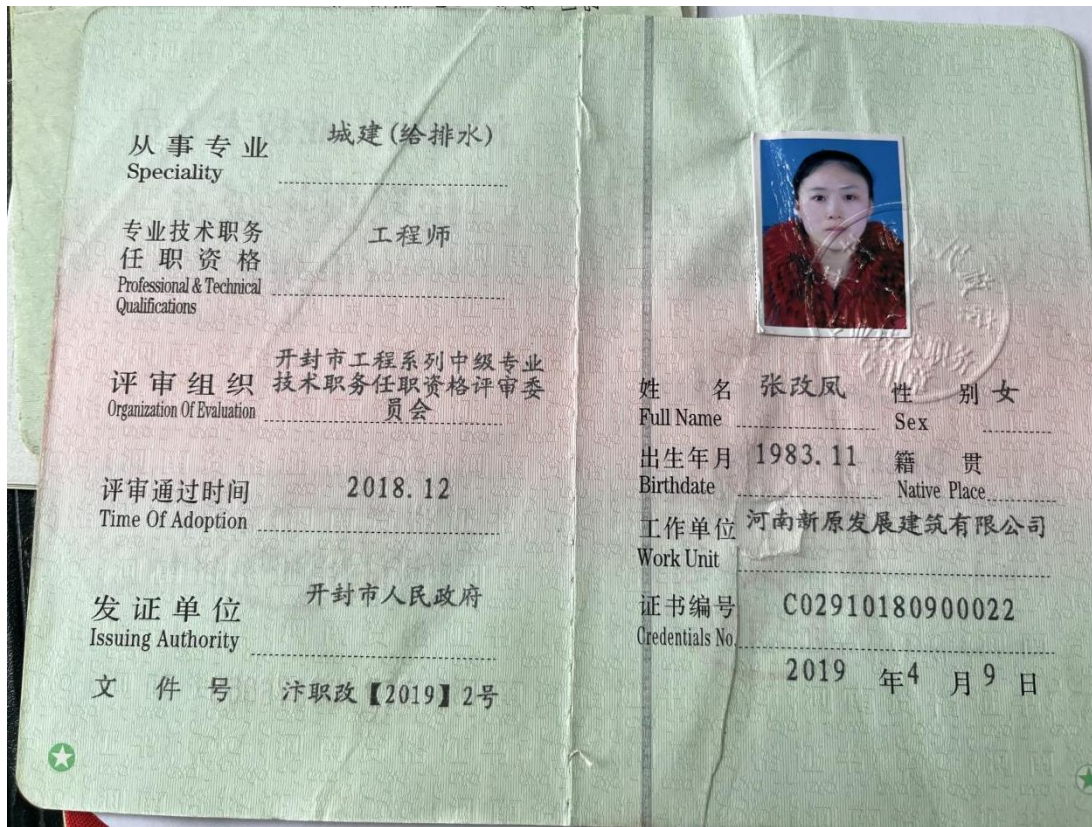 从事专业 城建(给排水)
Speciality
专业技术职务 工程师
任职资格
Professional & Technical
Qualifications
开封市工程系列中级专业
评审组织 技术职务任职资格评审委
Organization Of Evaluation 员会
评审通过时间 2018.12
Time Of Adoption
发证单位 开封市人民政府
Issuing Authority
文件号 汴职改【2019】2号
姓名 张改凤 性别 女
Full Name Sex
出生年月 1983.11 籍贯
Birthdate Native Place
工作单位 河南新原发展建筑有限公司
Work Unit
证书编号 C02910180900022
Credentials No.
2019 年 4 月 9 日